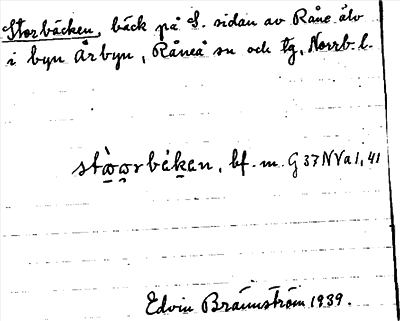 Storbäcken, bäck på S. sidan av Råne älv
i byn Årbyn, Råneå sn och tg, Norrb. l.
bf. m. G 37 NV a 1, 41
Edvin Brännström 1939.